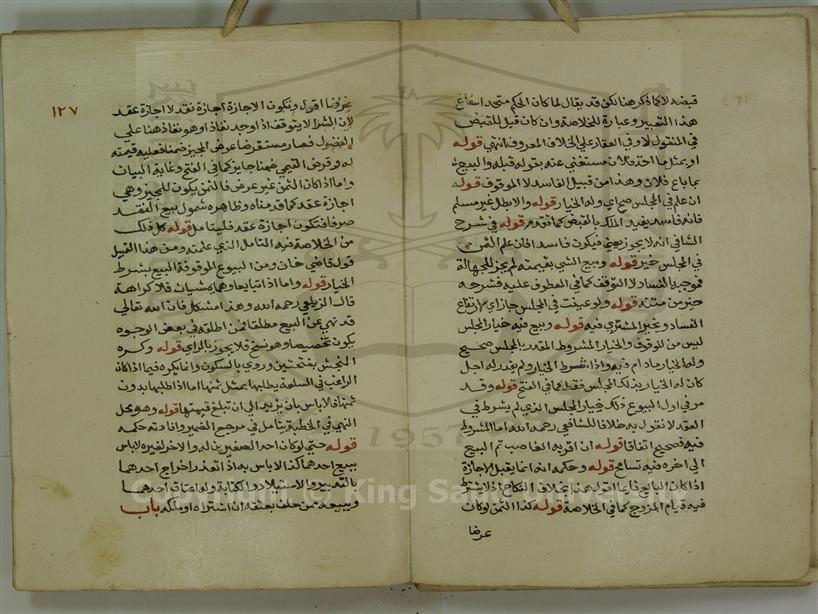 قبضه لا كما ذكر هنا لكن قد يقال لما كان الحكم متحدا
هذا التعبير وعبارة للخلاصة وان كان قبل القبض
في المنقول لا وفي العقار على الخلاف المعروف انتهى قوله
او بمثل ما اخذ فلان مستغنى عنه بقوله قبله والبيع
بما باع فلان وهذا من قبيل الفاسد لا الموقوف قوله
ان علم في المجلس صح اي وله الخيار قوله والا بطل غير مسلم
فانه فاسد يفيد الملك بالقبض كما تقدم قوله في شرح
الشافي انه لا يجوز يعني فيكون فاسدا فان علم الثمن
في المجلس خير قوله وبيع الشي بقيمته لم يجز للجهالة
فموجبه الفساد لا التوقف كما في المعطوف عليه فشرحه
حيز من متنه قوله ولو عينت في المجلس جاز اي ارتفاع
الفساد ويخير المشتري فيه قوله وبيع فيه خيار المجلس
ليس من الموقوف والخيار المشروط المقدر بالمجلس صحيح
وله الخيار ما دام فيه واذا شرط الخيار ولم يقدر له اجل
كان له الخيار بذلك المجلس فقط كما في الفتح قوله وقد
مر في اول البيوع ذلك خيار المجلس الذي لم يشرط في
العقد لا نقول به خلافا للشافعي رحمه الله اما المشروط
فيه فصحيح اتفاقا قوله ان اقر به الغاصب تم البيع
الى اخره فيه تسامح قوله وحكمه انه انما يقبل الاجازة
اذا كان البايع قوله بخلاف النكاح اذ لا يشترط
فيه قيام المزوج كما في الخلاصة قوله كذا الثمن لو كان
عرضا
١٢٧
عرضا اقول وتكون الاجازة اجازة نقد لا اجازة عقد
لان الشرا لا يتوقف اذا وجد نفاذا وهو نفاذ هنا على
الفضولي فصار مستقرضا عرض المجيز ضمنا فعليه قيمته
له وقرض القيمي ضمنا جايز كما في الفتح وغاية البيان
واما اذا كان الثمن غير عرض فالثمن يكون للمجيز وهي
اجازة عقد كما قدمناه وظاهره شمول بيع النقد
صرفا فتكون اجازة عقد فليتامل قوله كل ذلك
من الخلاصة فيه التامل الذي علمته ومن هذا القبيل
قول قاضي خان ومن البيوع الموقوفة البيع بشرط
الخيار قوله واما اذا تبايعا وهما يمشيان فلا كراهة
قال الزيلعي رحمه الله وهذا مشكل فان الله تعالى
قد نهى عن البيع مطلقا فمن اطلقه في بعض الوجوه
يكون تخصيصا وهو نسخ فلا يجوز بالراي قوله وكره
النجش بفتحتين وروي بالسكون وانما يكره فيما اذا كان
الراغب في السلعة يطلبها بمثل ثمنها اما اذا طلبها بدون
ثمنها فلا باس بان يزيد الى ان تبلغ قيمتها قوله وهو محل
النهي في الخطبة يتامل في مرجع الضمير وافادته حكمه
قوله حتى لو كان احد الصغيرين له والاخر لغيره لا باس
ببيع احدهما كذا لا باس به اذا تعذر اخراج احدهما
بالتدبير والاستيلاد والكتابة وله اعتاق احدهما
وبيعه ممن حلف بعتقه ان اشتراه او ملكه باب
1957
Copyright © King Saud University